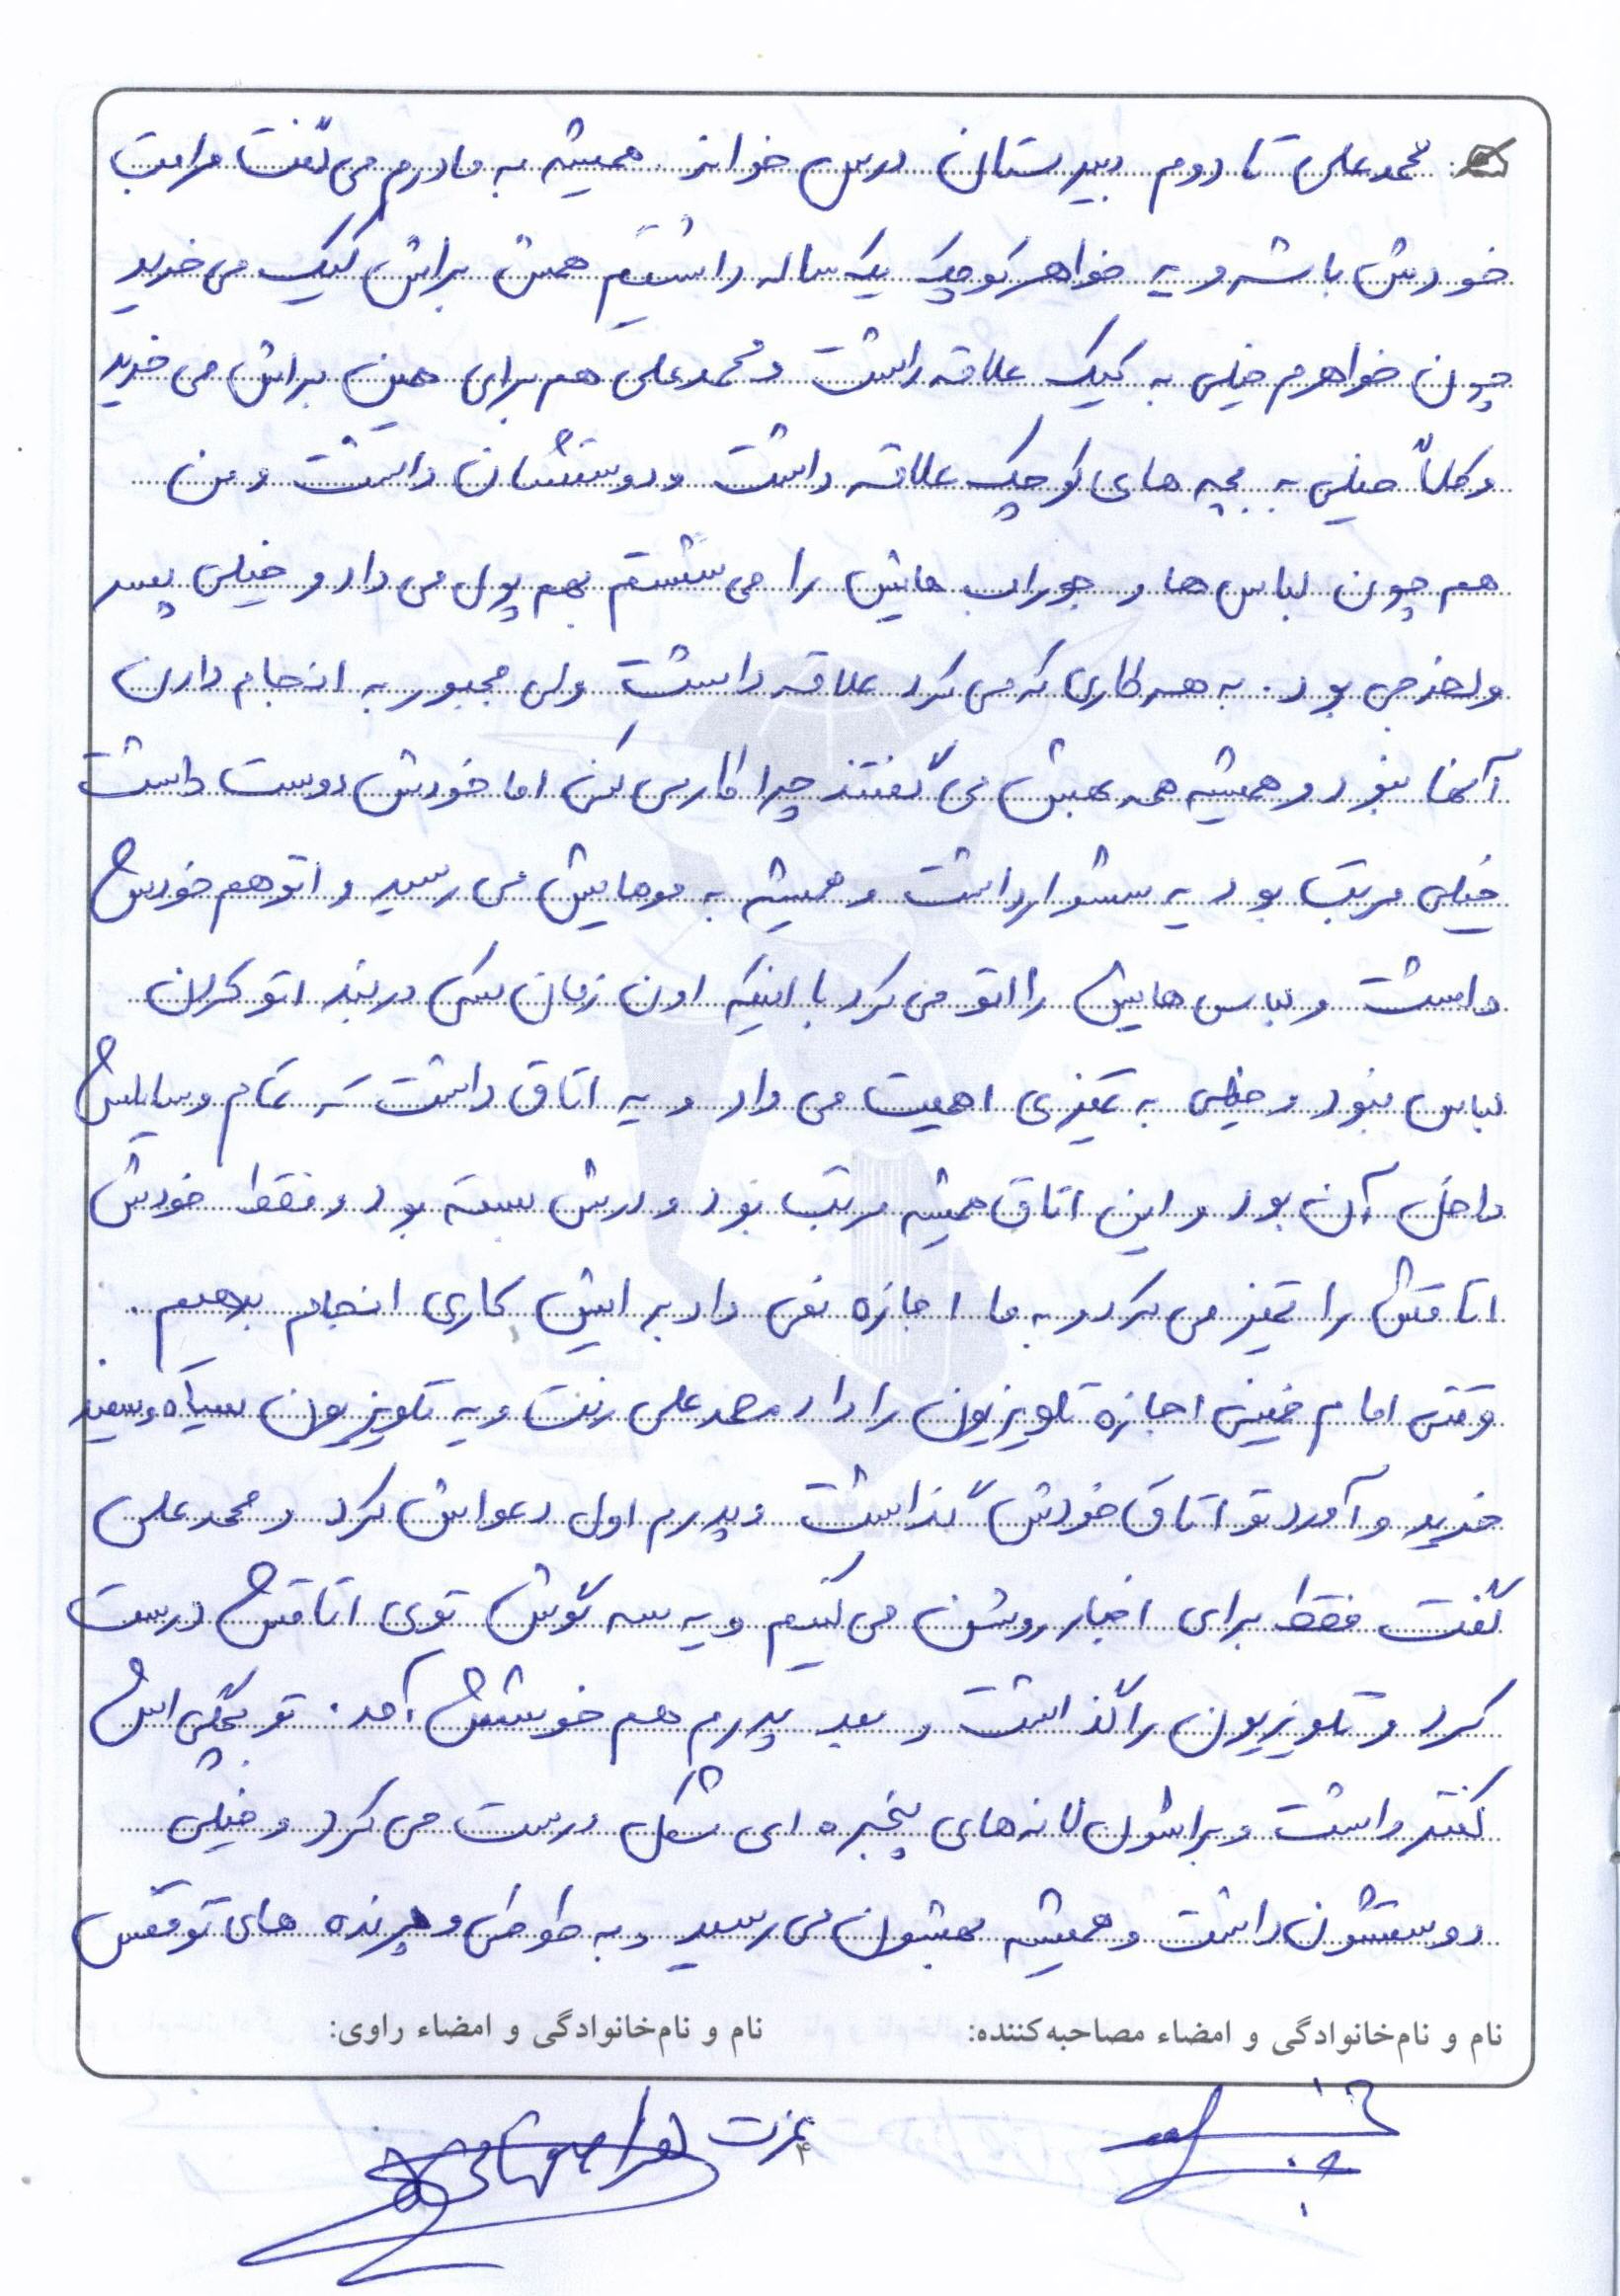 محمدعلی تا دوم دبیرستان درس خواند. همیشه به مادرم می گفت مراقب
خودش باشه و یه خواهر کوچک یک ساله داشتیم همش براش کیک می خرید
چون خواهرم خیلی به کیک علاقه داشت و محمدعلی هم برای همین براش می خرید
و کلاً خیلی به بچه های کوچک علاقه داشت و دوستشان داشت و من
هم چون لباس ها و جوراب هایش را می شستم بهم پول می داد و خیلی پسر
ولخرجی بود. به هر کاری که می کرد علاقه داشت ولی مجبور به انجام دادن
آنها نبود و همیشه همه بهش می گفتند چرا کار می کنی اما خودش دوست داشت
خیلی مرتب بود یه سشوار داشت و همیشه به موهایش می رسید و اتو هم خودش
داشت و لباس هایش را اتو می کرد با اینکه اون زمان کسی دربند اتو کردن
لباس نبود و خیلی به تمیزی اهمیت می داد و یه اتاق داشت که تمام وسایلش
داخل آن بود و این اتاق همیشه مرتب بود و درش بسته بود و فقط خودش
اتاقش را تمیز می کرد و به ما اجازه نمی داد برایش کاری انجام بدهیم.
وقتی امام خمینی اجازه تلویزیون را داد محمدعلی رفت و یه تلویزیون سیاه و سفید
خرید و آورد تو اتاق خودش گذاشت و پدرم اول دعواش کرد و محمدعلی
گفت فقط برای اخبار روشن می کنیم و یه سه گوش توی اتاقش درست
کرد و تلویزیون را گذاشت و بعد پدرم هم خوشش آمد. تو بچگی اش
کفتر داشت و براشون لانه های پنجره ای شکل درست می کرد و خیلی
دوستشون داشت و همیشه بهشون می رسید و به طوطی و پرنده های تو قفس
نام و نام‌خانوادگی و امضاء مصاحبه‌کننده:
نام و نام‌خانوادگی و امضاء راوی:
عزت
۴